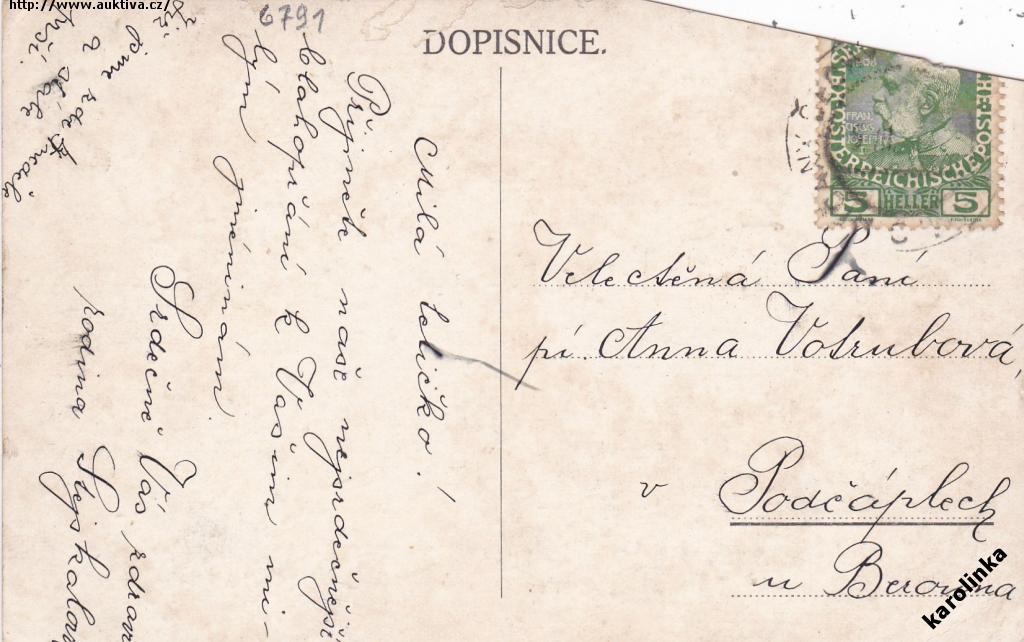 http://www.auktiva.cz/
6791
DOPISNICE.
Milá tetičko!
Přijměte naše nejsrdečnější
blahopřání k Vašim mi-
lým jmeninám.
Srdečně Vás zdraví
rodina Stejskalova
5 HELLER 5
Velectěná Paní
pí. Anna Votrubová,
v Podčáplech
u Berouna
karolinka